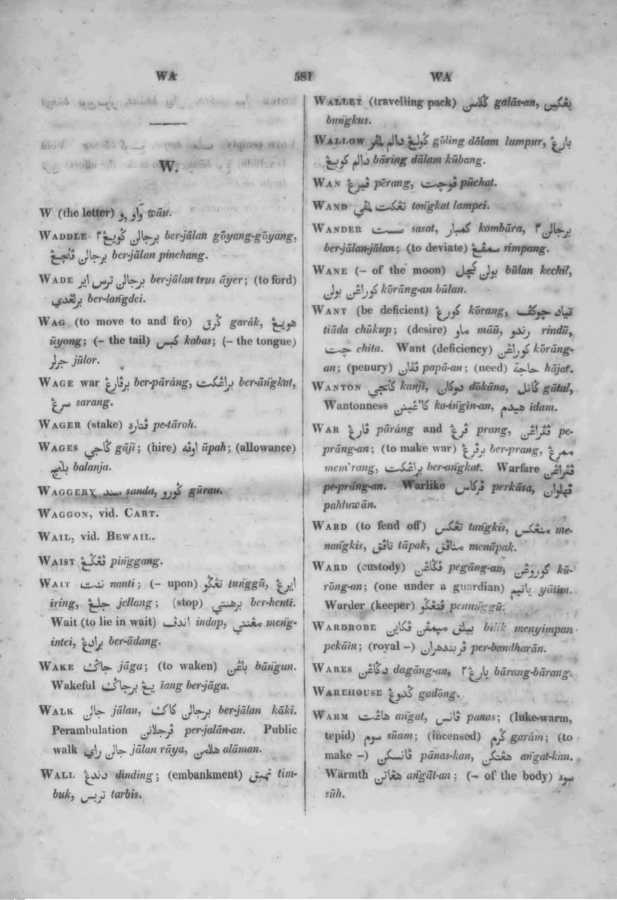 WA 581 WA
W.
W (the letter) واو, و wāu.
WADDLE برجالن گويڠ٢ ber-jālan gōyang-gōyang,
برجالن ڤنچڠ ber-jālan pinchang.
WADE برجالن ترس اير ber-jālan trus āyer; (to ford)
ber-lang̃dei.
WAG (to move to and fro) گرق garāk, هويڠ
ūyong; (- the tail) كبس kabas; (- the tongue)
جولر jūlor.
WAGE war برڤارڠ ber-pārang, براڠكت ber-āng̃kat,
سرڠ sarang.
WAGER (stake) ڤتاره pe-tāroh.
WAGES گاجي gāji; (hire) اوڤه ūpah; (allowance)
بلنج balanja.
WAGGERY سندا sanda, گورو gūrau.
WAGGON, vid. CART.
WAIL, vid. BEWAIL.
WAIST ڤڠگڠ ping̃gang.
WAIT ننت nanti; (- upon) تڠگو tung̃gū, ايرڠ
īring, جلڠ jellang; (stop) برهنتي ber-henti.
Wait (to lie in wait) اندڤ indap, مڠنتي meng̃-
intei, برادڠ ber-ādang.
WAKE جاڬ jāga; (to waken) باڠن bāng̃un.
Wakeful يڠ برجاڬ iang ber-jāga.
WALK جالن jālan, برجالن كاكي ber-jālan kāki.
Perambulation ڤرجلانن per-jalān-an. Public
walk جالن راي jālan rāya, هلامن alāman.
WALL دندڠ dinding; (embankment) تمبق tim-
buk, تربس tarbis.
WALLET (travelling pack) گلاسن galās-an, بڠكس
bung̃kus.
WALLOW گولڠ دالم لمڤر gūling dālam lumpur, بارڠ
دالم كوبڠ bāring dālam kūbang.
WAN ڤيرڠ pērang, ڤوچت pūchat.
WAND تڠكت لمڤي tong̃kat lampei.
WANDER سست sasat, كمبار kombāra, برجالن٢
ber-jālan-jālan; (to deviate) رمڤڠ rimpang.
WANE (- of the moon) بولن كچل būlan kechil,
كوراڠن بولن kōrāng-an būlan.
WANT (be deficient) كورڠ kōrang, تياد چوكڤ
tiāda chūkup; (desire) ماو māū, رندو rindū,
چيت chita. Want (deficiency) كوراڠن kōrāng-
an; (penury) ڤڤان papā-an; (need) حاجة hājat.
WANTON گانجي kanji, دوكان dōkāna, گاتل gātal,
Wantonness كاعيڠينن ka-ing̃in-an, هيدم idam.
WAR ڤارڠ pārang and ڤرڠ prang, ڤڤراڠن pe-
prāng-an; (to make war) برڤرڠ ber-prang, ممرڠ
mem'rang, براڠكت ber-ang̃kat. Warfare ڤڤراڠن
pe-prāng-an. Warlike ڤركاس perkāsa, ڤهلوان
pahluwān.
WARD (to fend off) تڠكس tang̃kis, منڠكس me-
nang̃kis, تاڤق tāpak, مناڤق menāpak.
WARD (custody) ڤڬاڠن pegāng-an, كوروڠن kū-
rōng-an; (one under a guardian) يتيم yātim.
Warder (keeper) ڤنڠگو penung̃gū.
WARDROBE بيلق ميمڤن ڤكاين bīlik menyimpan
pekāin; (royal -) ڤربندهران per-bandharān.
WARES دڬاڠن dagāng-an, بارڠ٢ bārang-bārang.
WAREHOUSE گدوڠ gadōng.
WARM هاڠت ang̃at, ڤانس panas; (luke-warm,
tepid) سوم sūam; (incensed) گرم garām; (to
make -) ڤانسكن pānas-kan, هڠتكن ang̃at-kan.
Warmth هڠاتن ang̃āt-an; (- of the body) سوه
sūh.